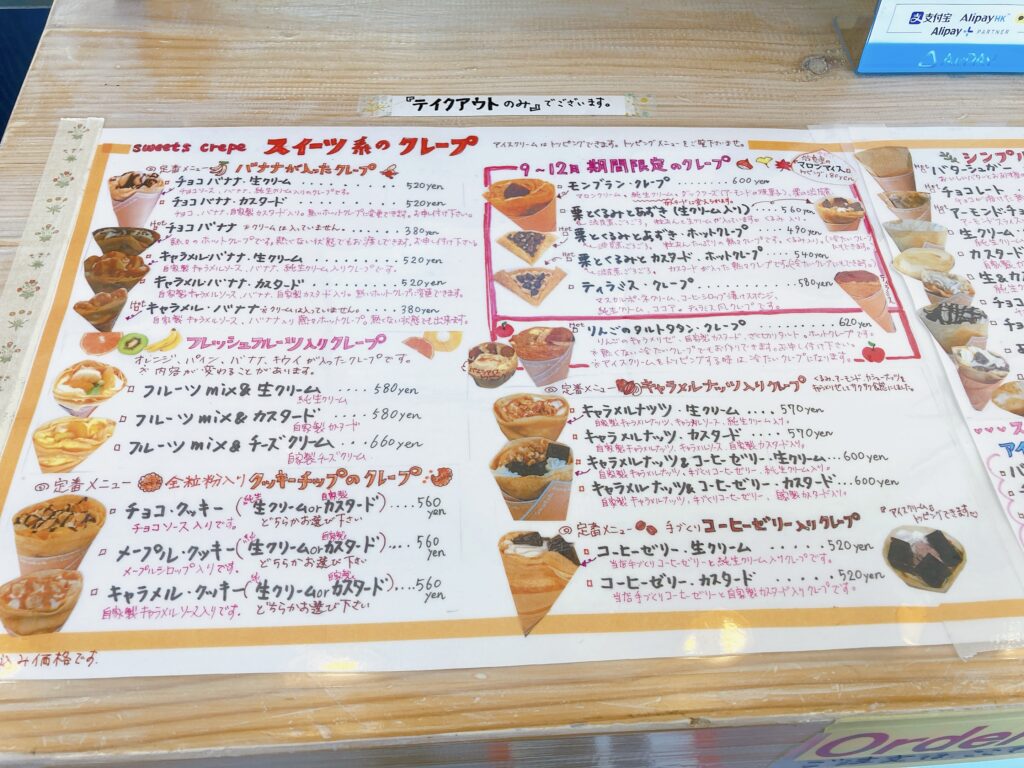 支付宝 AlipayHK
Alipay+ PARTNER
『テイクアウトのみ』でございます。
sweets crepe スイーツ系のクレープ
アイスクリームはトッピングできます。トッピングメニューをご覧下さいませ。
◎定番メニュー バナナが入ったクレープ
チョコバナナ・生クリーム 520yen
チョコソース、バナナ、純生クリーム入りのクレープです。
チョコバナナ・カスタード 520yen
チョコ、バナナ、自家製カスタード入り。熱いホットクレープに変更できます。お申し付け下さい。
Hot
チョコバナナ ※クリームは入っていません。 380yen
キャラメルバナナ・生クリーム 520yen
自家製キャラメルソース、バナナ、純生クリーム入りクレープです。
キャラメルバナナ・カスタード 520yen
Hot
キャラメル・バナナ ※クリームは入っていません。 380yen
フレッシュフルーツ入りクレープ
オレンジ、パイン、バナナ、キウイが入ったクレープです。
※内容が変わることがあります。
フルーツmix&生クリーム 580yen
純生クリーム
フルーツmix&カスタード 580yen
自家製カスタード
フルーツmix&チーズクリーム 660yen
自家製チーズクリーム
◎定番メニュー 全粒粉入りクッキーチップのクレープ
チョコ・クッキー(生クリームorカスタード) 560yen
純生 自家製
チョコソース入りです。 どちらかお選び下さい
メープル・クッキー(生クリームorカスタード) 560yen
メープルシロップ入りです。 どちらかお選び下さい
キャラメル・クッキー(生クリームorカスタード) 560yen
自家製キャラメルソース入りです。 どちらかお選び下さい
込み価格です。
9~12月 期間限定のクレープ
マロンアイス
モンブラン・クレープ 600yen
栗とくるみとあずき(生クリーム入り) 560yen
Hot
栗とくるみとあずき・ホットクレープ 490yen
Hot
栗とくるみとカスタード・ホットクレープ 540yen
ティラミス・クレープ 580yen
マスカルポーネクリーム、コーヒーシロップ漬けスポンジ、
純生クリーム、ココア。ティラミス風クレープです。
Hot
りんごのタルトタタン・クレープ 620yen
※熱くない冷たいクレープでもお作りできます。お申し付け下さい。
※アイスクリームをトッピングする時は、冷たいクレープになります。
◎定番メニュー キャラメルナッツ入りクレープ
キャラメルナッツ・生クリーム 570yen
自家製キャラメルナッツ、キャラメルソース、純生クリーム入り。
キャラメルナッツ・カスタード 570yen
自家製キャラメルナッツ、キャラメルソース、自家製カスタード入り。
キャラメルナッツ&コーヒーゼリー・生クリーム 600yen
自家製キャラメルナッツ、手づくりコーヒーゼリー、純生クリーム入り。
キャラメルナッツ&コーヒーゼリー・カスタード 600yen
自家製キャラメルナッツ、手づくりコーヒーゼリー、自家製カスタード入り。
◎定番メニュー 手づくりコーヒーゼリー入りクレープ
コーヒーゼリー・生クリーム 520yen
当店手づくりコーヒーゼリーと純生クリーム入りクレープです。
コーヒーゼリー・カスタード 520yen
当店手づくりコーヒーゼリーと自家製カスタード入りクレープです。
アイスクリームも
トッピングできます
シンプル
チョコレート
アーモンド・チョ
生クリーム
カスタード
Order